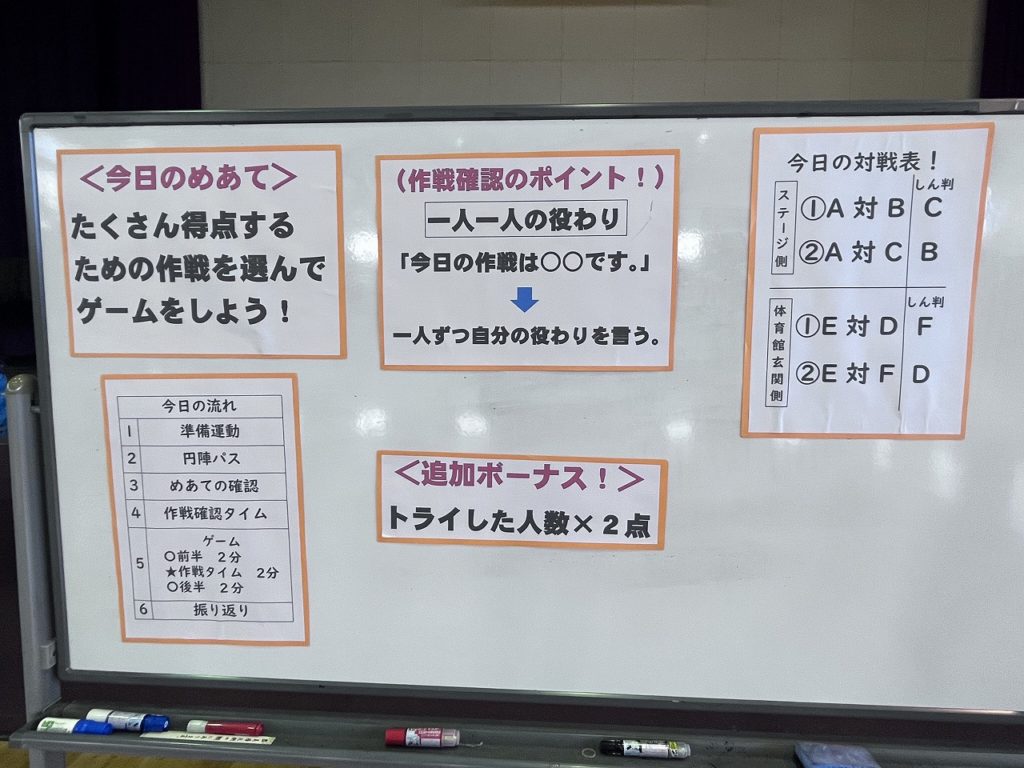 ＜今日のめあて＞
たくさん得点する
ための作戦を選んで
ゲームをしよう！
今日の流れ
1 準備運動
2 円陣パス
3 めあての確認
4 作戦確認タイム
5 ゲーム
○前半 2分
★作戦タイム 2分
○後半 2分
6 振り返り
（作戦確認のポイント！）
一人一人の役わり
「今日の作戦は○○です。」
一人ずつ自分の役わりを言う。
＜追加ボーナス！＞
トライした人数×２点
今日の対戦表！
ステージ側
しん判
①A 対 B C
②A 対 C B
体育館玄関側
しん判
①E 対 D F
②E 対 F D